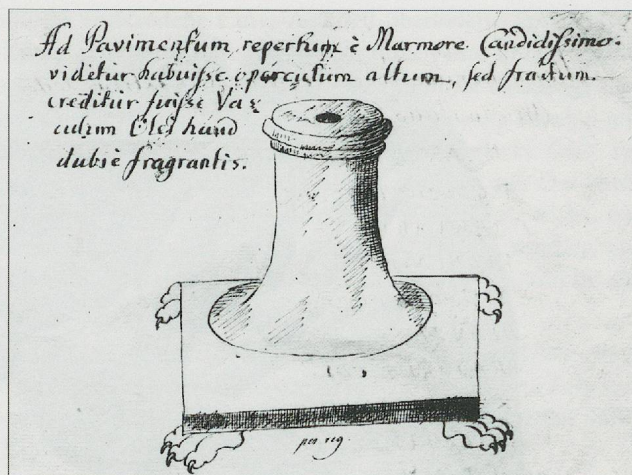 Ad Pavimentum repertum è Marmore Candidissimo.
videtur habuisse operculum altum, sed fractum.
creditur fuisse Vas
culum Olei haud
dubiè fragrantis.